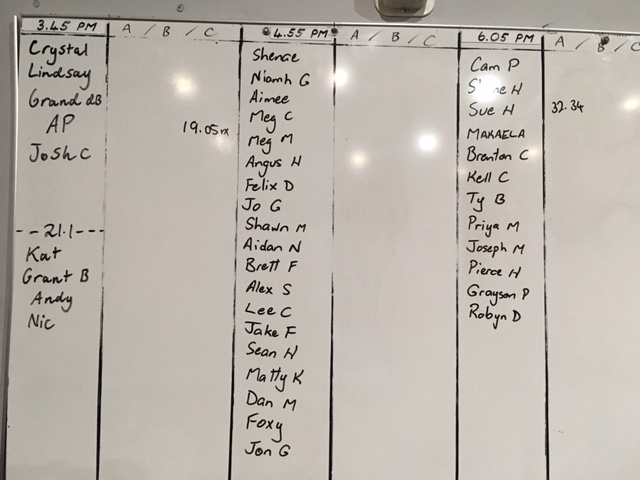 3.45 PM
A / B / C
Crystal
Lindsay
Grand dB
AP
19.05rx
Josh C
--21.1---
Kat
Grant B
Andy
Nic
4.55 PM
A / B / C
Niamh G
Aimee
Meg C
Meg M
Angus H
Felix D
Jo G
Shawn M
Aidan N
Brett F
Alex S
Lee C
Jake F
Sean H
Matty K
Dan M
Foxy
Jon G
6.05 PM
A / B / C
Cam P
H
Sue H
32.34
MAKAELA
Brenton C
Kell C
Ty B
Priya M
Joseph M
Pierce H
Grayson P
Robyn D